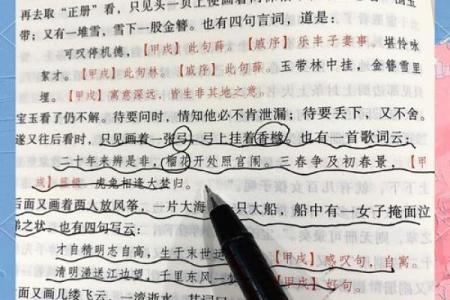 再去取“正册”看，只见头一页上便画着
带；又有一堆雪，雪下一股金簪。也有四句言词，道是：
可叹停机德，【甲戌】此句薛。【戚序】乐羊子妻事。堪怜咏
絮才。【甲戌】此句林。【戚序】此句薛。玉带林中挂，金簪雪里
埋。【甲戌】寓意深远，皆生非其地之意。
宝玉看了仍不解。待要问时，情知他必不肯泄漏；待要丢下，又不舍。
遂又往后看时，只见画着一张弓，弓上挂着香橼。也有一首歌词云：
二十年来辨是非，榴花开处照宫闱。三春争及初春景，【甲
戌】 虎兔相逢大梦归。
后面又画着两人放风筝，一片大海，一只大船，船中有一女子掩面泣
涕之状。也有四句写云：
才自精明志自高，生于末世运 【甲戌】感叹句，自寓。
清明涕送江边望，千里东风一 【甲戌】好句。
后面又画几缕飞云，一湾逝水。其词曰